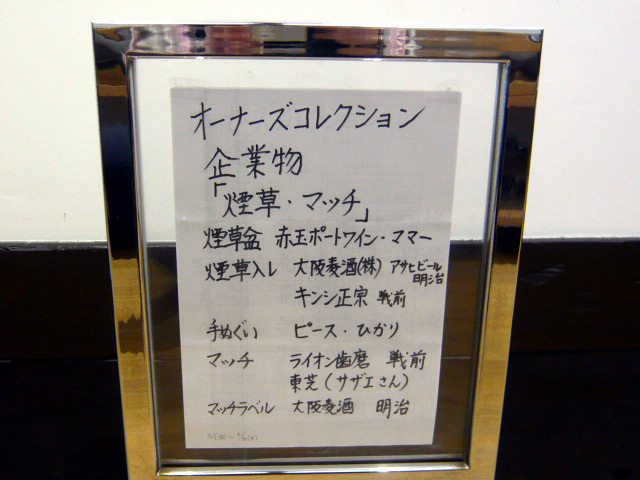 オーナーズコレクション
企業物
「煙草・マッチ」
煙草盆 赤玉ポートワイン・ママー
煙草入レ 大阪麦酒(株) アサヒビール 明治
キンシ正宗 戦前
手ぬぐい ピース・ひかり
マッチ ライオン歯磨 戦前
東芝(サザエさん)
マッチラベル 大阪麦酒 明治